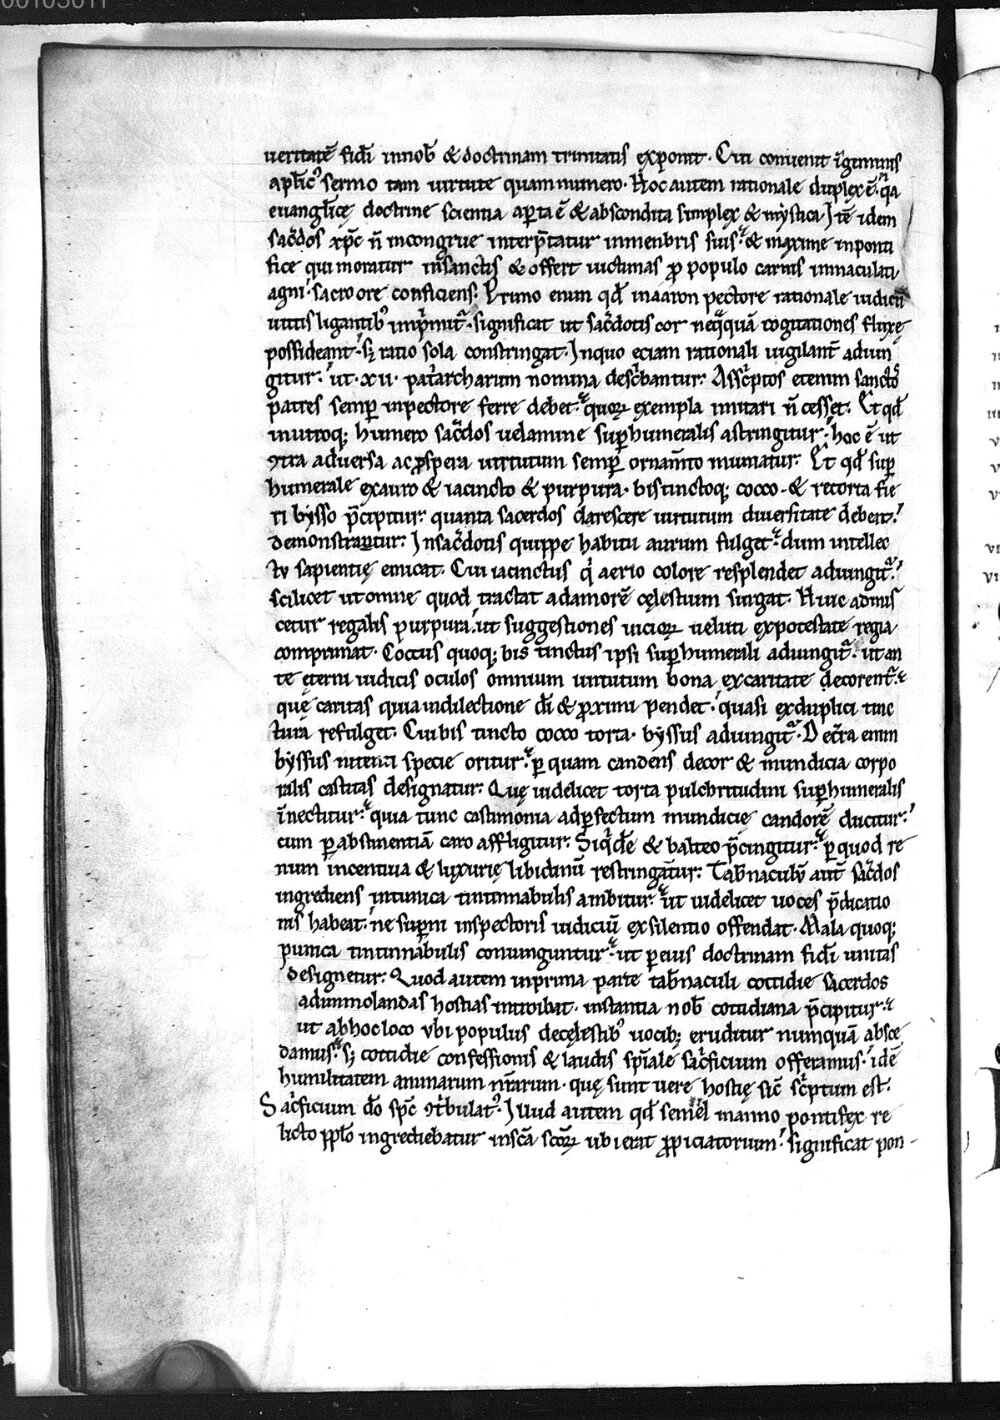 00105011
ueritatē fidī innob̄ & doctrinam trinitatis exponit. Cui conuenit
ap̄lic᷒ sermo tam uirtute quam numero. Hoc autem rationale duplex ē. q̄a
euangl̄icę doctrine scientia aꝑta ē & abscondita simplex & mystica Itē idem
sac̄dos xp̄c n̄ incongrue interp̄tatur inmenbris suis. & maxime inponti
fice qui moratur insanctis & offert uictimas ꝓ populo carnis inmaculati
agni. sacro ore conficiens. Primo enim qd̄ inaaron pectore rationale iudicii
uittis ligantib᷒ impͥmitͬ. significat ut sac̄dotis cor neq̄quā cogitationes fluxę
possideant. s; ratio sola constringat. Inquo eciam rationali uigilant̄ adiun
gitur. ut .xii. patͥarcharum nomina descͥbantur. Asscͥptos etenim sancto᷒
patres semꝑ inpectore ferre debet. quoꝝ exempla imitari n̄ cesset. Et qd̄
inutroq; humero sac̄dos uelamine suꝑhumeralis astringitur. hoc ē ut
ꝯtra aduersa ac ꝓspera uirtutum semꝑ ornam̄to muniatur. Et qd̄ suꝑ
humerale exauro & iacincto & purpura. bistinctoq; cocco. & retorta fie
ri bysso p̄cipitur. quanta sacerdos clarescere uirtutum diuersitate debeat.
demonstratur. Insac̄dotis quippe habitu aurum fulget. dum intellec
tu sapientię emicat. Cui iacinctus qͥ aerio colore resplendet adiungitͬ.
scilicet ut omne quod tractat adamorē cęlestium surgat. Huic admis
cetur regalis purpura. ut suggestiones uicioꝝ ueluti expotestate regia
comprimat. Coccus quoq; bis tinctus ipsi suꝑhumerali adiungitͬ. ut an
te ęterni iudicis oculos omnium uirtutum bona excaritate decorentͬ.
quę caritas quia indilectione dī & ꝓximi pendet. quasi exduplici tinc
tura refulget. Cui bis tincto cocco torta. byssus adiungitͬ. De tr̄a enim
byssus nitenti specie oritur. ꝑ quam candens decor & mundicia corpo
ralis castitas designatur. Quę uidelicet torta pulchritudini suꝑhumeralis
īnectitur. quia tunc castimonia adꝑfectum mundicię candorē ducitur.
cum ꝑ abstinentiā caro affligitur. Siqͥdē & balteo p̄cingitur. ꝑ quod re
num incentiua & luxurię libidinū restringātur. Tab̄naculū aut̄ sac̄dos
ingrediens intunica tintinnabulis ambitur. ut uidelicet uoces p̄dicatio
nis habeat. ne suꝑni inspectoris iudiciū exsilentio offendat. Mala quoq;
punica tintinnabulis coniunguntur. ut ꝑ eius doctrinam fidī unitas
designetur. Quod autem inprima parte tab̄naculi cottidie sacerdos
adimmolandas hostias introibat. instantia nob̄ cotidiana p̄cipitur.
ut abhoc loco ubi populus decęlestib᷒ uocib; eruditur numquā absce
damus. s; cottidie confessionis & laudis sp̄iale sacͥficium offeramus. idē
humilitatem animarum nr̄arum. quę sunt uere hostię sic̄ scͥptum est.
Sacͥficium dō sp̄c ꝯtͥbulat᷒. Illud autem qd̄ semel in anno pontifex re
licto pplo ingrediebatur insc̄a sc̄oꝝ ubi erat ꝓpiciatorium. significat pon-